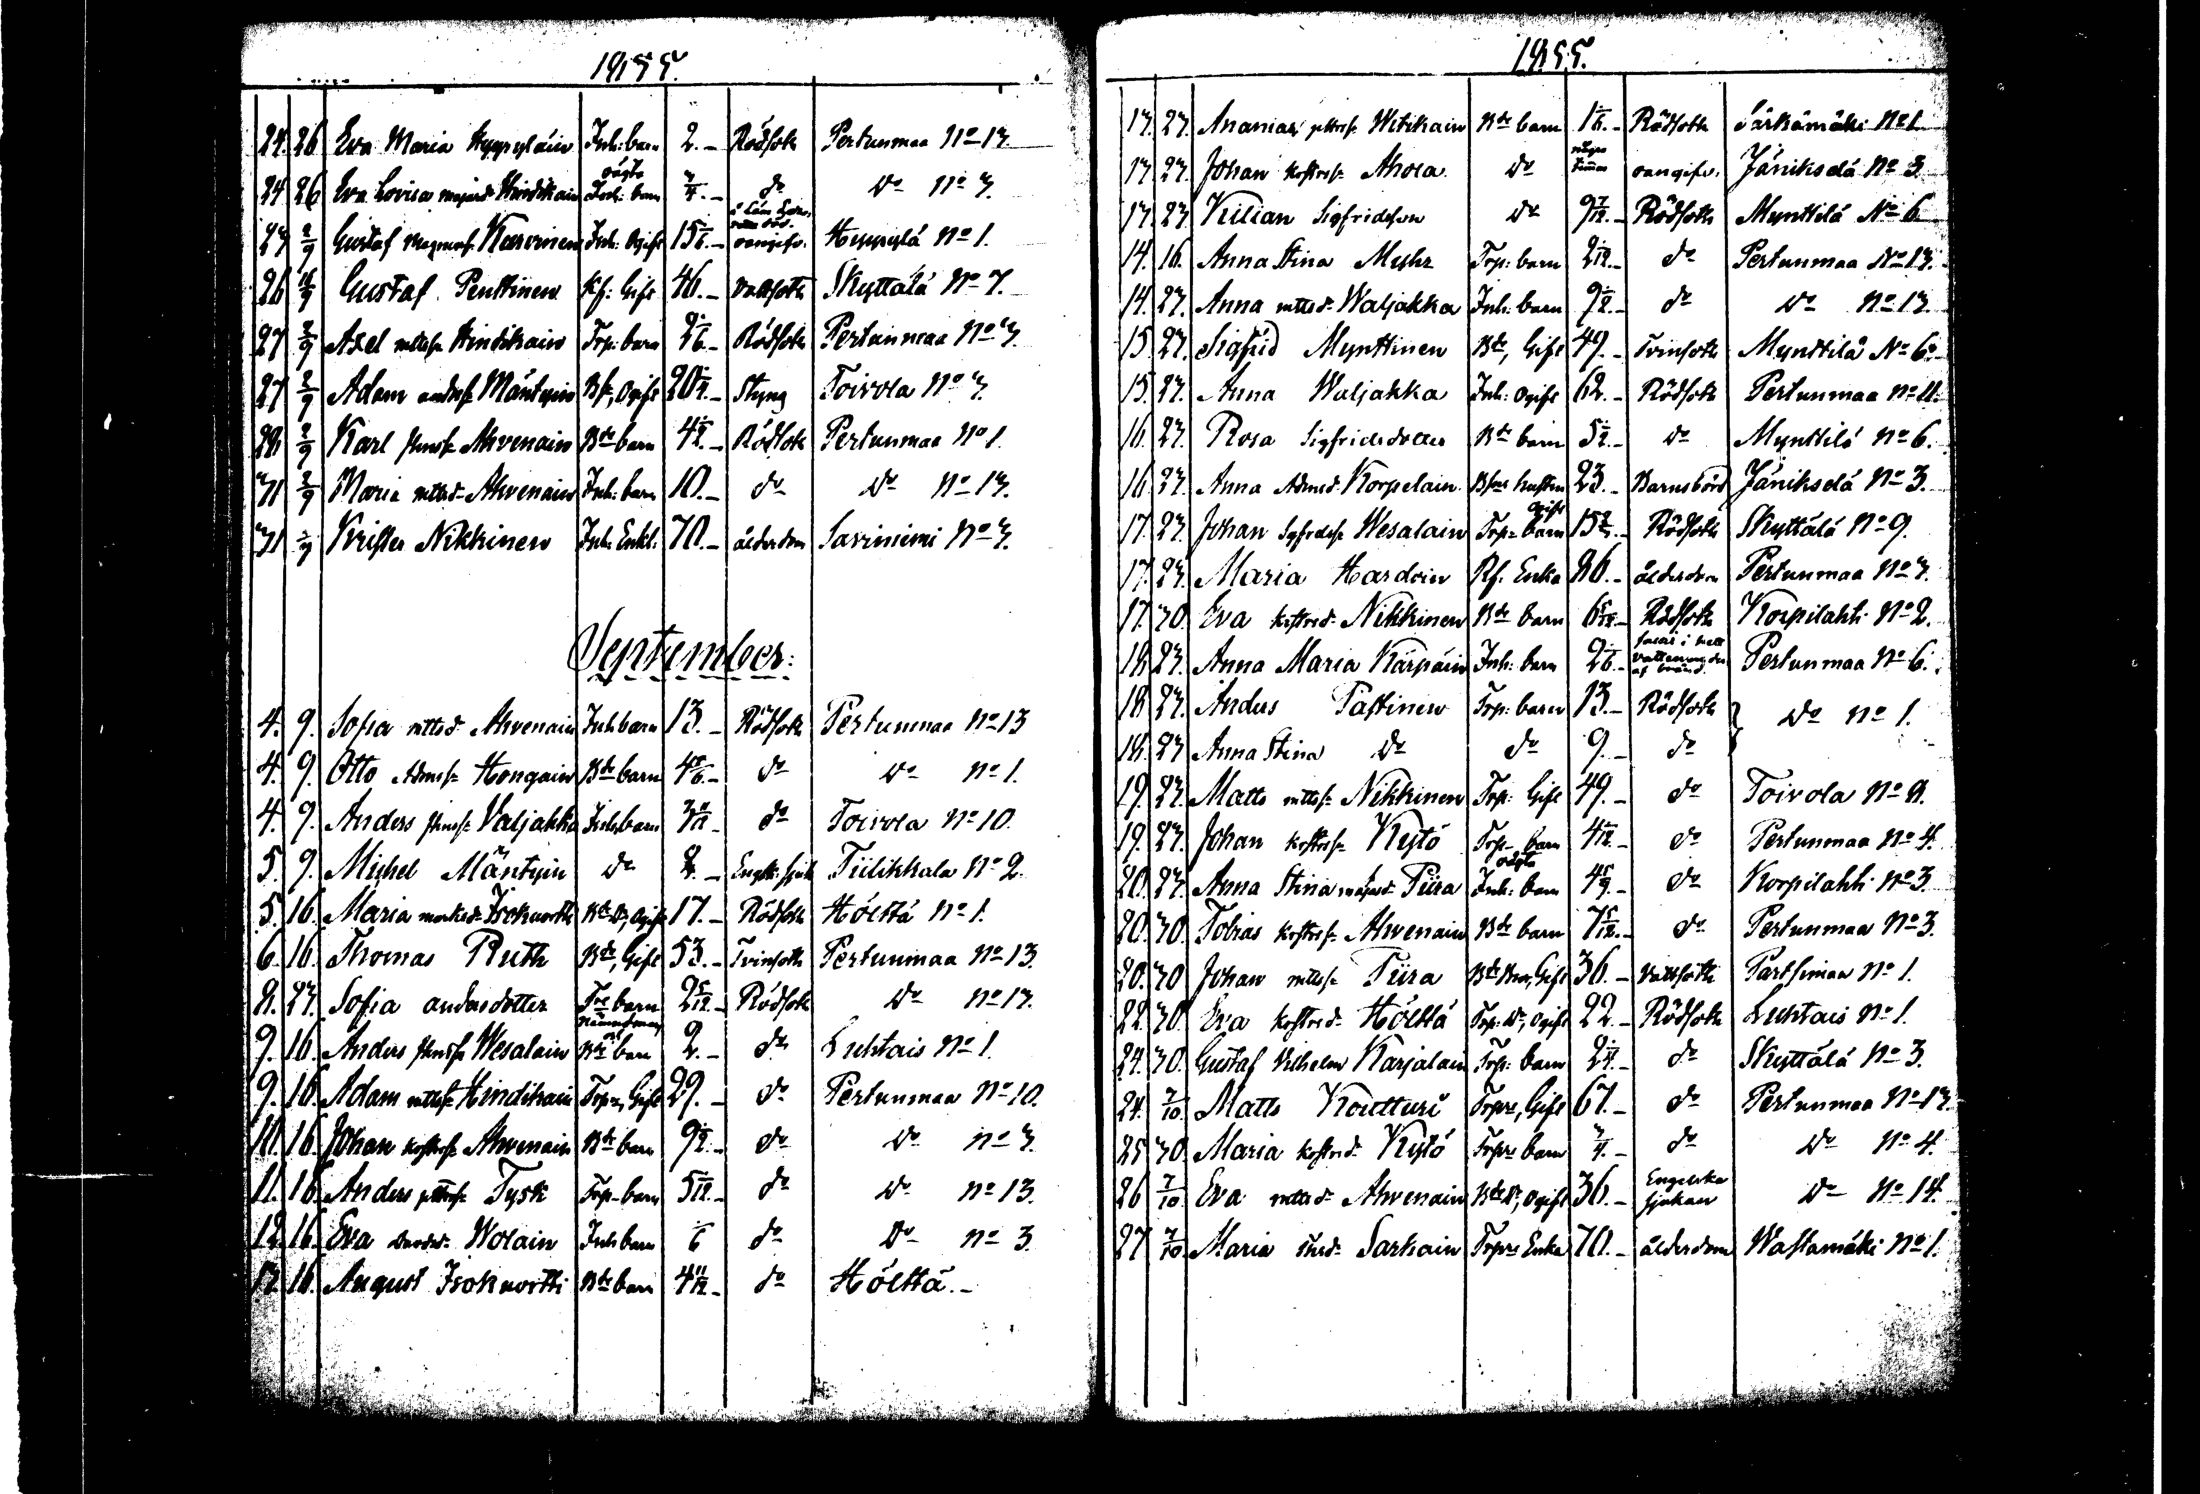 1855.
24. 26 Eva Maria Hyyryläin Inh: barn 2.- Rödsoth Pertunmaa No 13.
24 26 Eva Lovisa Hindikain oägta Inh: barn 3/4.- do Do No 3.
27 2/9 Gustaf Karvinen Inh: Ogift 15 oangifv. Hyyrylä No 1.
26 16/9 Gustaf Penttinen Gift 46.- Vattsoth Skyttälä No 7.
27 2/9 Axel mattss: Hindikain Trp: barn Rödsoth Pertunmaa No 3.
27 2/9 Adam Mäntyin Ogift 20 Styng Toivola No 3.
28. 2/9 Karl Ahvenain Bde barn 4 1/2.- Rödsoth Pertunmaa No 1.
31 2/9 Maria mattsd: Ahvenain Inh: barn 10.- do Do No 13.
31 2/9 Krister Nikkinen Inh: Enkl: 70.- ålderdom Saviniemi No 3.
September:
4. 9. Sofia mattsd: Ahvenain Inh barn 13.- Rödsoth Pertunmaa No 13
4. 9. Otto Admss: Hongain Bde barn 4 5/6.- do Do No 1.
4. 9. Anders Valjakka Inh. barn do Toivola No 10.
5. 9. Michel Mäntyin Do 8.- Engelk: sjuk Tiilikkala No 2.
5. 16. Maria Isokuortti Ogift 17.- Rödsoth Hölttä No 1.
6. 16. Thomas Ruth Bde, Gift 53.- Tvinsoth Pertunmaa No 13.
8. 23. Sofia andersdotter barn 2 5/12.- Rödsoth Do No 13.
9. 16. Anders Wesalain Nämndeman Bde barn 2.- do Luhtais No 1.
9. 16. Adam mattss: Hindikain Trp, Gift 29.- do Pertunmaa No 10.
10. 16. Johan Ahvenain Bde barn 9 1/2.- do Do No 3.
11. 16. Anders Tysk Trp barn 5 do Do No 13.
12. 16. Eva Wolain Inh barn do Do No 3.
13. 16. August Isokuortti Bde barn 4 11/12.- do Hölttä.-
1855.
13. 23. Ananias Witikain Bde barn 1 1/6.- Rödsoth Särkämäki No 1
13. 23. Johan Ahola Do några timmar oangifv. Jänikselä No 3.
13. 23 Kilian Sigfridsson Do 9 7/12.- Rödsoth Mynttilä No 6
14. 16. Anna Stina Myhr Trp: barn 2 do Pertunmaa No 13.
14. 23. Anna mattsd: Waljakka Inh: barn 9 1/2.- do Do No 13.
15. 23. Sigfrid Mynttinen Bde, Gift 49.- Tvinsoth Mynttilä No 6.
15. 23. Anna Waljakka Inh: Ogift 62.- Rödsoth Pertunmaa No 11.
16. 23. Rosa Sigfridsdotter Bde barn 5 1/2.- Do Mynttilä No 6.
16. 23. Anna Admsd: Korpelain hustru 23.- Barnsbörd Jänikselä No 3.
17. 23. Johan Wesalain Trp: barn 15 Rödsoth Skyttälä No 9.
17. 23. Maria Hardoin Enka 86.- ålderdom Pertunmaa No 3.
17. 30. Eva Nikkinen Bde barn 6 5/12.- Rödsoth Korpilahti No 2.
18. 23. Anna Maria Kärpäin Inh: barn 2 1/6.- Pertunmaa No 6.
18. 23. Anders Pastinen Trp: barn 13.- Rödsoth Do No 1.
18. 23 Anna Stina Do do 9.- do
19. 23. Matts mattss: Nikkinen Trp: Gift 49.- do Toivola No 8.
19. 23. Johan Kytö Trp barn 4 do Pertunmaa No 4.
20. 23. Anna Stina Piira oägta Inh: barn 4 5/9.- do Korpilahti No 3.
20. 30. Tobias Ahvenain Bde barn 7 5/12.- do Pertunmaa No 3.
20. 30 Johan mattss: Piira Gift 36.- Vattsoth Partsimaa No 1.
22. 30. Eva Hölttä Trp: Dr, Ogift 22.- Rödsoth Luhtais No 1.
24. 30. Gustaf Vilhelm Karjalain Trp: barn 2 1/4.- do Skyttälä No 3.
24. 7/10. Matts Koutturi Trpre, Gift 67.- do Pertunmaa No 13.
25 30. Maria Kytö Trpre barn 3/4.- do Do No 4.
26 7/10. Eva mattsd: Ahvenain Bde Dr, Ogift 36.- Engelska sjukan Do No 14.
27 7/10 Maria Sarkain Trpre Enka 70.- ålderdom Wastamäki No 1.